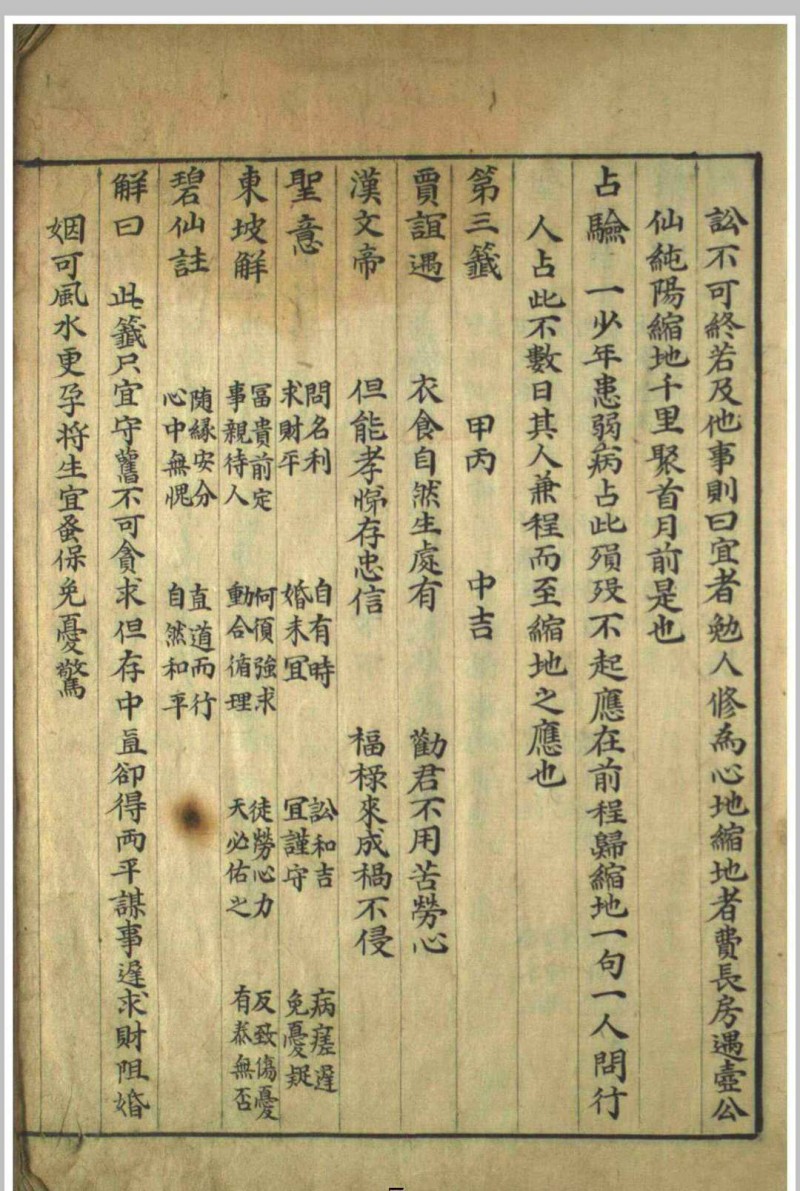 訟不可終若及他事則曰宜者勉人修為心地縮地者費長房遇壺公
仙純陽縮地千里聚首月前是也
占驗　一少年患弱病占此殞歿不起應在前程歸縮地一句一人問行
人占此不數日其人兼程而至縮地之應也
第三籤　甲丙　中吉
賈誼遇　衣食自然生處有　勸君不用苦勞心
漢文帝　但能孝悌存忠信　福祿來成禍不侵
聖意　問名利　自有時　訟和吉　病瘥遲
求財平　婚未宜　宜謹守　免憂疑
東坡解　冨貴前定　何須強求　徒勞心力　反致傷憂
事親待人　動合循理　天必佑之　有泰無否
碧仙註　随緣安分　直道而行
心中無愧　自然和平
解曰　此籤只宜守舊不可貪求但存中直卻得兩平謀事遲求財阻婚
姻可風水更孕将生宜蚤保免憂驚